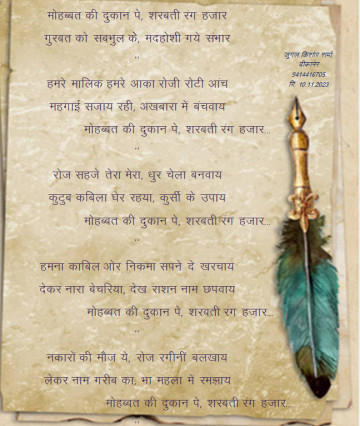 मोहब्बत की दुकान पे, शरबती रंग हजार
गुरबत को सबमुल के, मदहोशी गये संभार
''
जुगल किशोर शर्मा
बीकानेर
9414416705
दि. 10.11.2023
हमरे मालिक हमरे आका रोजी रोटी आंच
महगाई सजाय रही, अखबारा में बंचवाय
मोहब्बत की दुकान पे, शरबती रंग हजार...
''
रोज सहजे तेरा मेरा, धुर चेला बनवाय
कुटुब कबिला घेर रहया, कुर्सी के उपाय
मोहब्बत की दुकान पे, शरबती रंग हजार...
''
हमना काबिल ओर निकमा सपने दे खरचाय
देकर नारा बेचरिया, देख राशन नाम छपवाय
मोहब्बत की दुकान पे, शरबती रंग हजार...
''
नकारों की मौज ये, रोज रंगीनीं बलखाय
लेकर नाम गरीब का, भा महला में रमझाय
मोहब्बत की दुकान पे, शरबती रंग हजार...
''